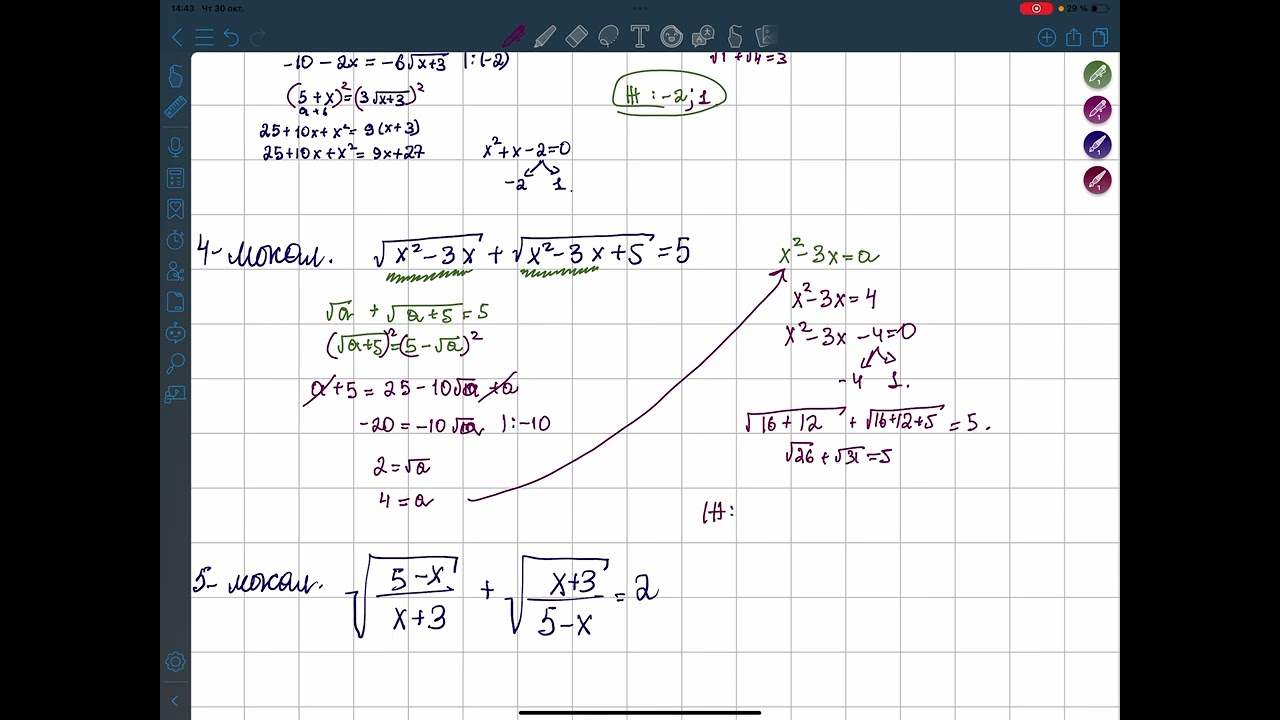 14:43 Чт 30 окт. 29 %
-10 - 2x = -6√(x+3) |:(-2)
(5 + x)² = (3√(x+3))²
a + b
25 + 10x + x² = 9(x+3)
25 + 10x + x² = 9x + 27
x² + x - 2 = 0
-2 1.
√1 + √4 = 3
Ж: -2; 1
4- мысал. √(x² - 3x) + √(x² - 3x + 5) = 5
√a + √(a+5) = 5
(√(a+5))² = (5 - √a)²
a + 5 = 25 - 10√a + a
-20 = -10√a |:-10
2 = √a
4 = a
x² - 3x = a
x² - 3x = 4
x² - 3x - 4 = 0
-4 1.
√(16 + 12) + √(16+12+5) = 5.
√26 + √31 = 5
Ж:
5- мысал. √((5-x)/(x+3)) + √((x+3)/(5-x)) = 2